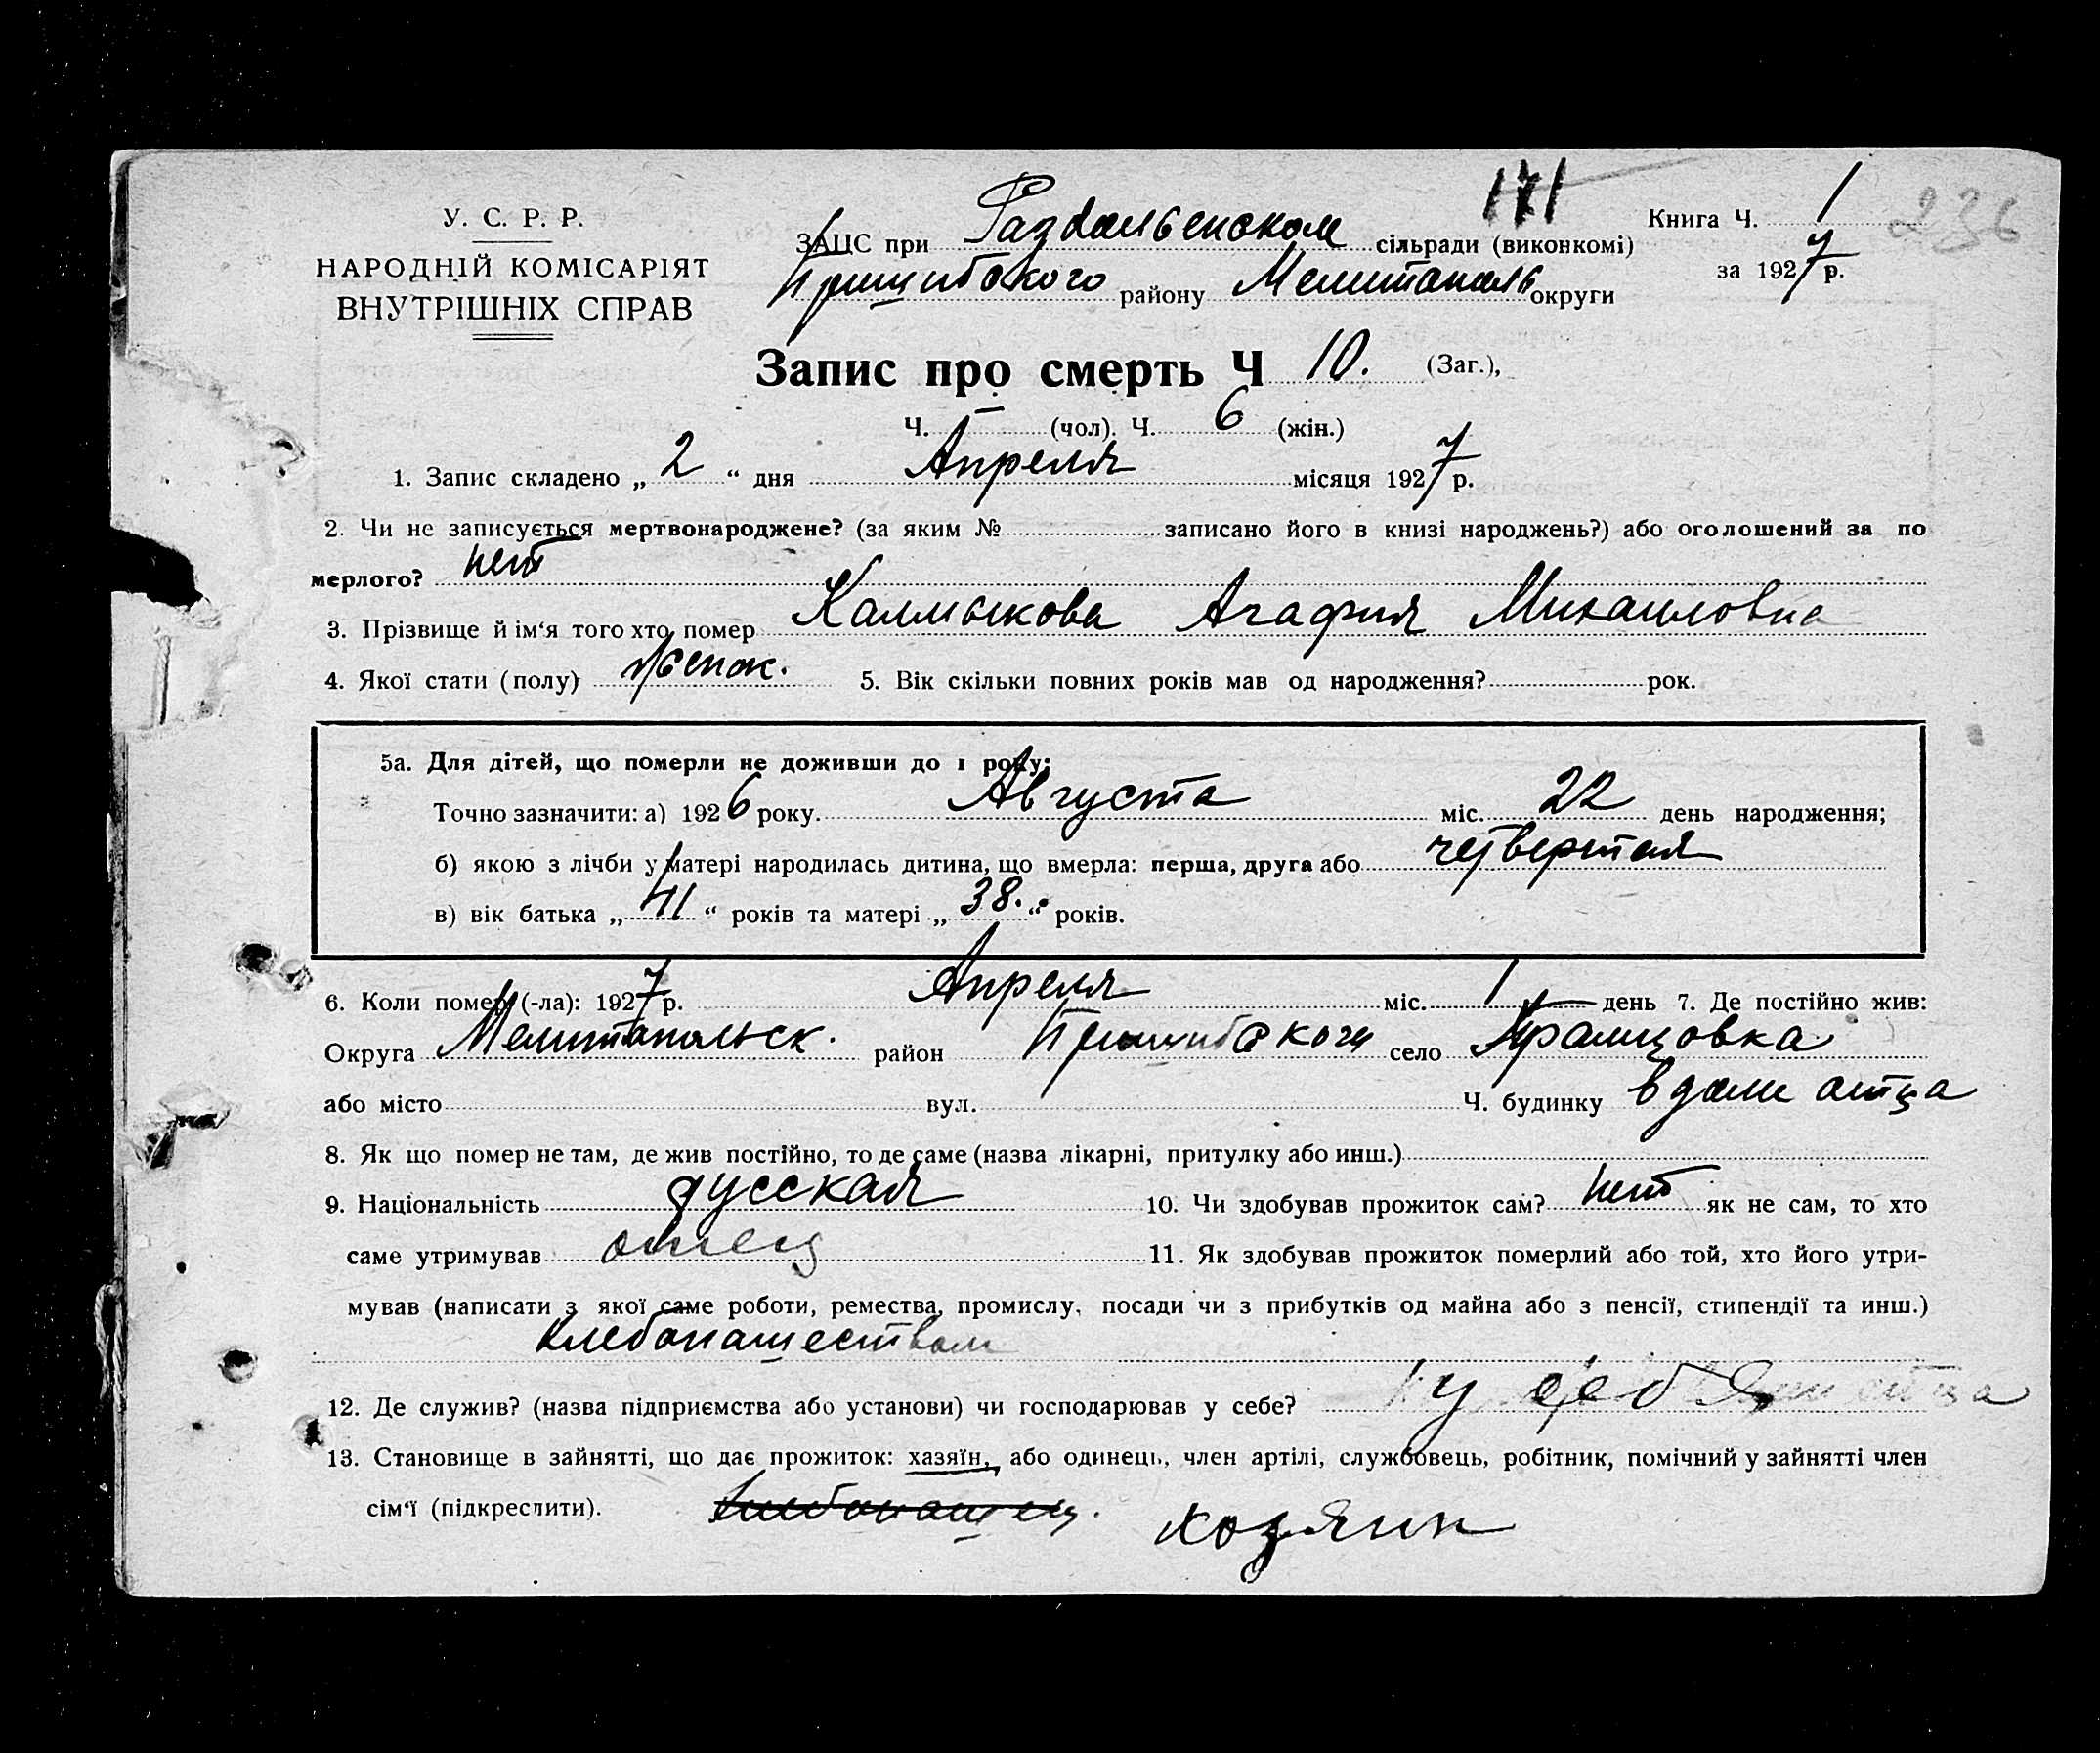 171
Книга Ч. 1 236
У. С. Р. Р.
ЗАЦС при Раздольенском сільради (виконкомі)
за 1927 р.
НАРОДНІЙ КОМІСАРІЯТ
Пришибского району Мелитополь округи
ВНУТРІШНІХ СПРАВ
Запис про смерть Ч 10. (Заг.),
Ч. — (чол). Ч. 6 (жін.)
1. Запис складено „ 2 “ дня Апреля місяця 1927 р.
2. Чи не записується мертвонароджене? (за яким № записано його в книзі народжень?) або оголошений за по
мерлого? нет
3. Прізвище й ім‘я того хто помер Калмыкова Агафия Михаиловна
4. Якої стати (полу) женск. 5. Вік скільки повних років мав од народження? рок.
5а. Для дітей, що померли не доживши до 1 року:
Точно зазначити: а) 1926 року. Августа міс. 22 день народження;
б) якою з лічби у матері народилась дитина, що вмерла: перша, друга або четвертая
в) вік батька „ 41 “ років та матері „ 38. “ років.
6. Коли помер (-ла): 1927 р. Апреля міс. 1 день 7. Де постійно жив:
Округа Мелитопольск. район Пришибского село
або місто вул. Ч. будинку в доме отца
8. Як що помер не там, де жив постійно, то де саме (назва лікарні, притулку або инш.)
9. Національність русская 10. Чи здобував прожиток сам? нет як не сам, то хто
саме утримував отец 11. Як здобував прожиток померлий або той, хто його утри-
мував (написати з якої саме роботи, ремества, промислу, посади чи з прибутків од майна або з пенсії, стипендії та инш.)
хлебопашеством
12. Де служив? (назва підприємства або установи) чи господарював у себе? у себя
13. Становище в зайнятті, що дає прожиток: хазяїн, або одинець, член артілі, службовець, робітник, помічний у зайнятті член
сім‘ї (підкреслити). хлебопашец. хозяин